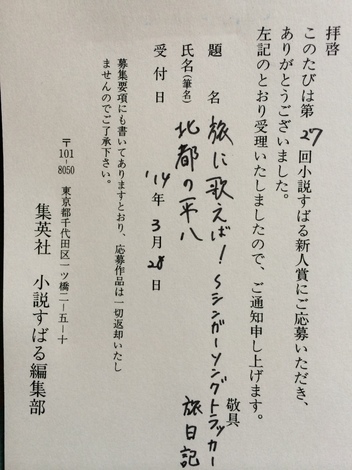 拝啓
このたびは第27回小説すばる新人賞にご応募いただき、
ありがとうございました。
左記のとおり受理いたしましたので、ご通知申し上げます。
敬具
題名 旅に歌えば！～シンガーソングトラッカー
旅日記
氏名(筆名) 北都の平八
受付日 '14年3月28日
募集要項にも書いてありますとおり、応募作品は一切返却いたし
ませんのでご了承下さい。
〒101-8050 東京都千代田区一ツ橋二-五-十
集英社 小説すばる編集部